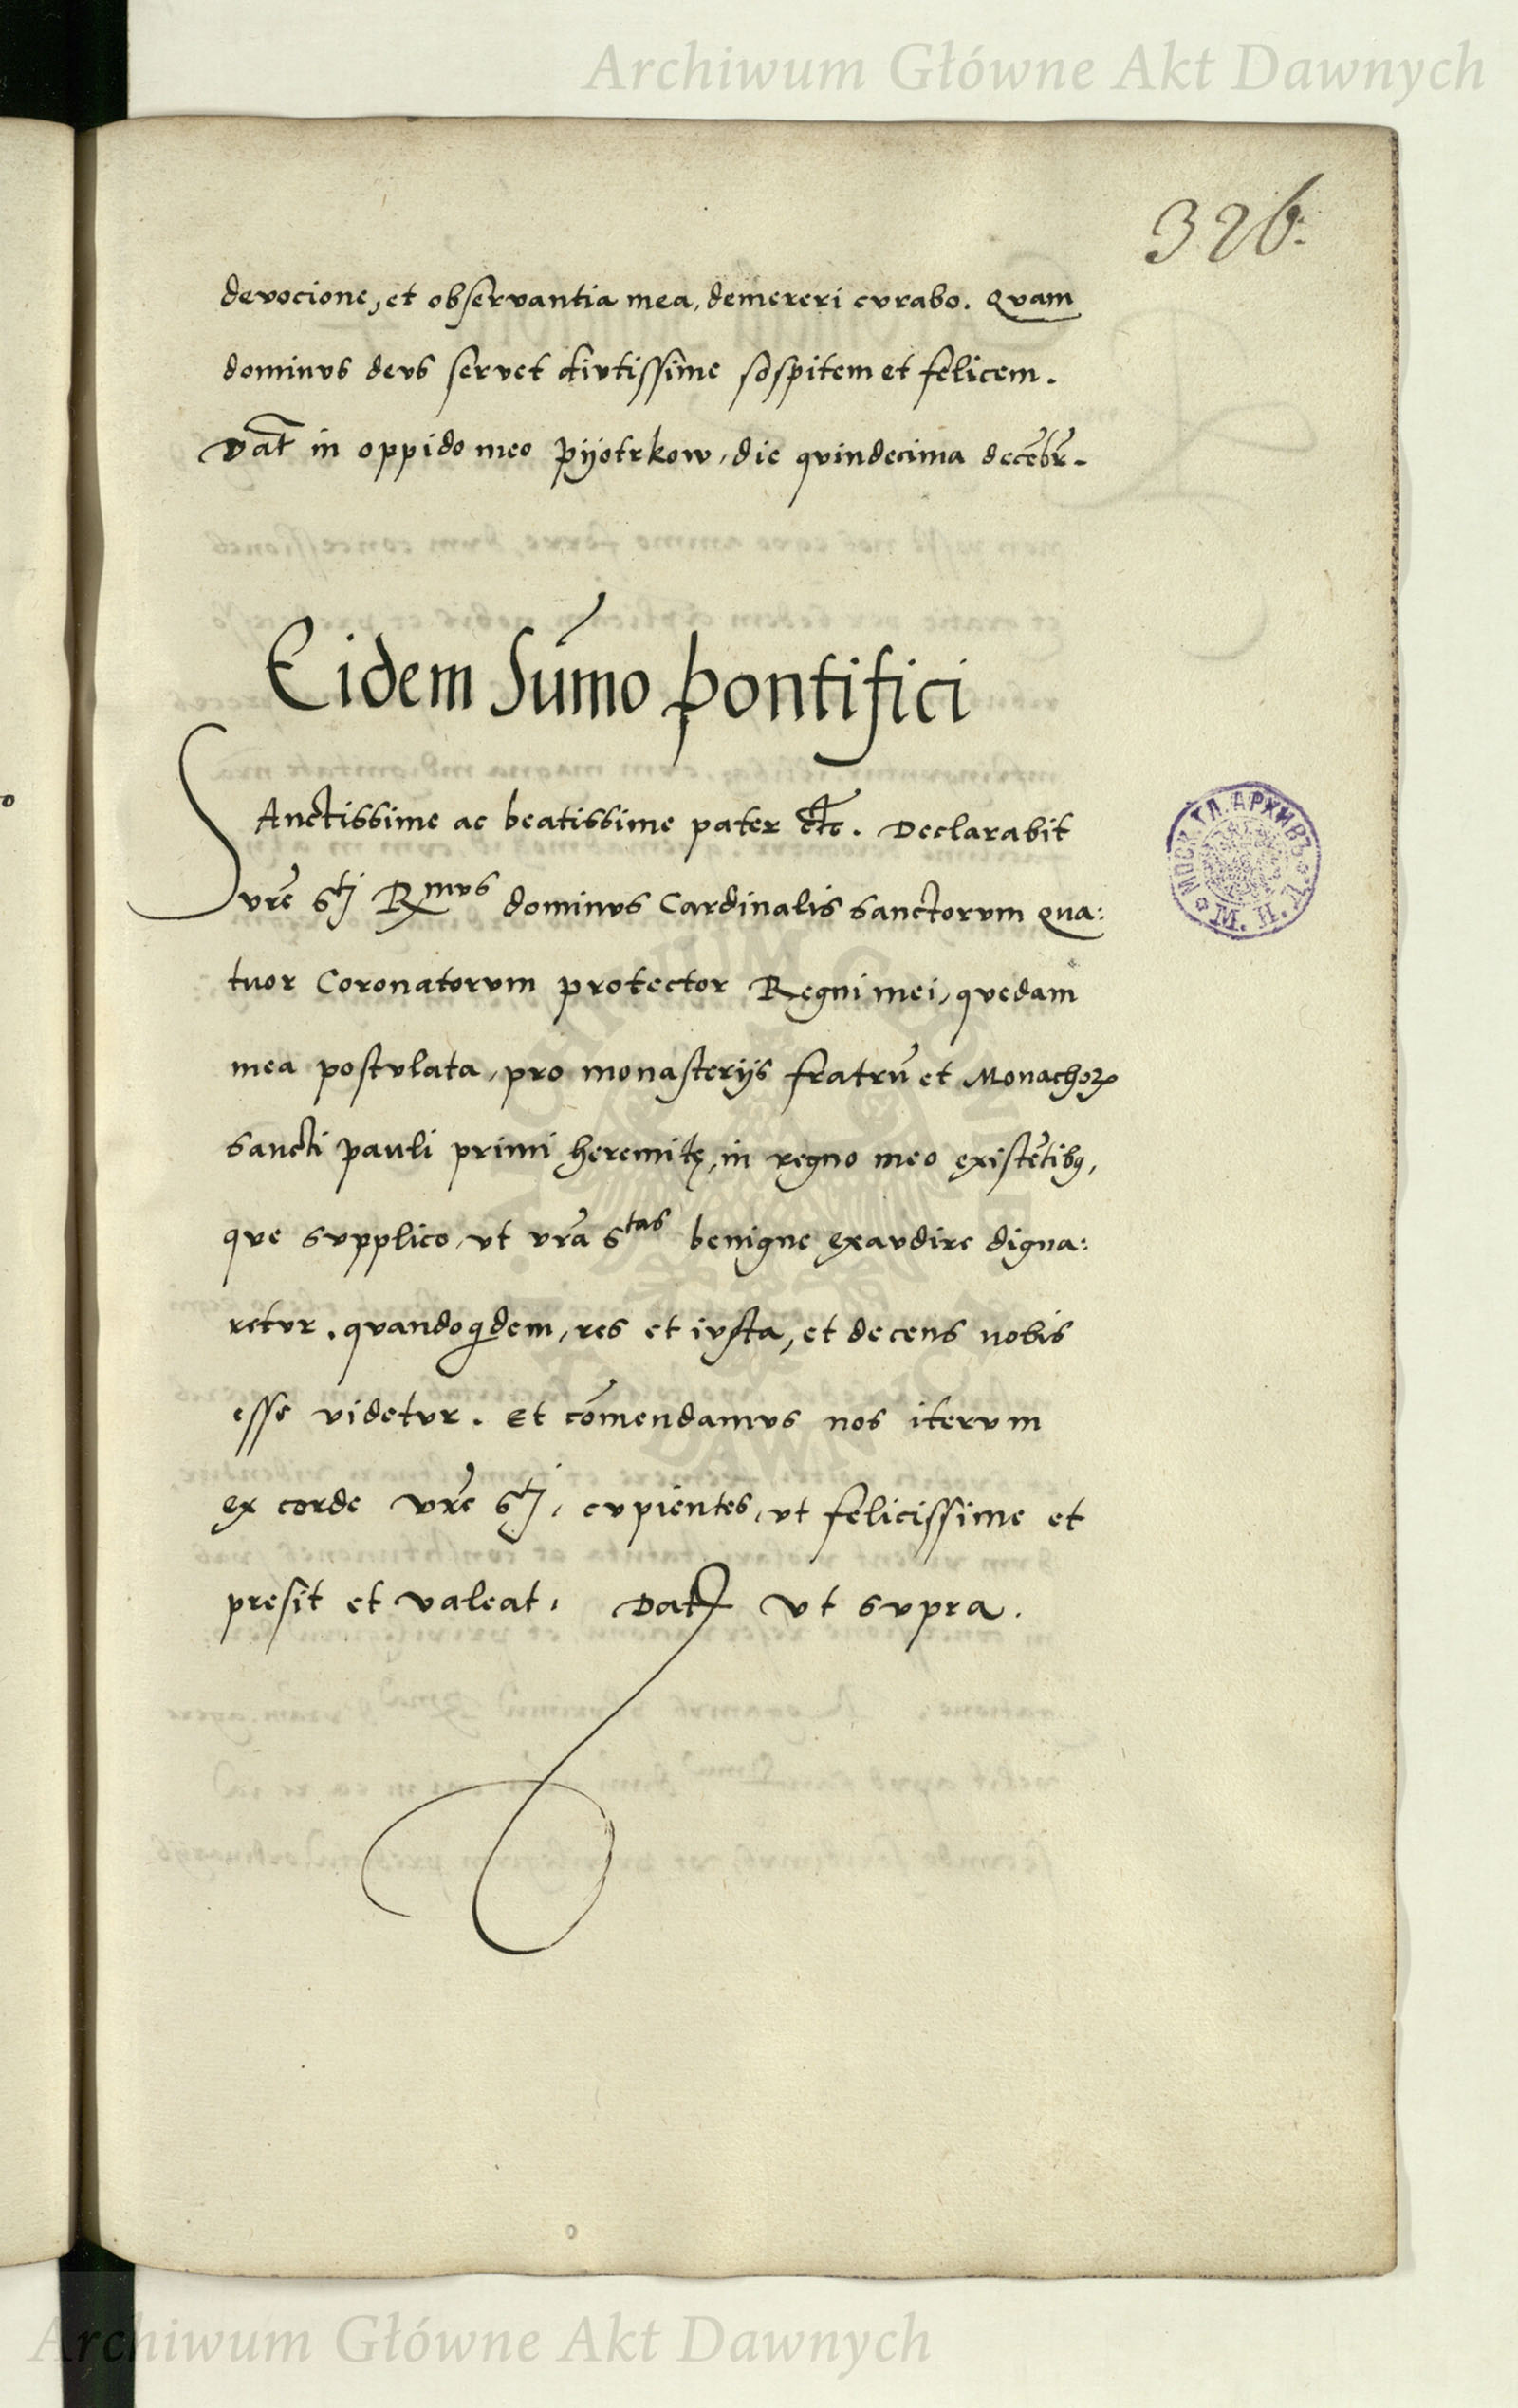 Archiwum Główne Akt Dawnych
326.
devocione, et observantia mea, demereri cvrabo. Qvam
dominvs devs servet divtissime sospitem et felicem.
Dat̃ in oppido meo Pijotrkow, die qvindecima decẽbr̃.
Eidem Sum̃o Pontifici
SAnctissime ac beatissime pater etc̃. Declarabit
vrẽ Stj Rmvs dominvs Cardinalis sanctorvm Qva:
tvor Coronatorvm protector Regni mei, qvedam
mea postvlata, pro monasterijs fratrũ et Monachoꝝ
sancti pavli primi heremitę, in regno meo existẽtibꝫ,
qve svpplico, vt vrã Stas benigne exavdire digna:
retvr. qvandoqͥdem, res et ivsta, et decens nobis
esse videtvr. Et cõmendamvs nos itervm
ex corde vrẽ Stj, cvpientes, vt felicissime et
presit et valeat. Dat̃ vt svpra.
МОСК. ГЛ. АРХИВЪ М. И. Д.
ARCHIWUM GŁÓWNE AKT DAWNYCH
Archiwum Główne Akt Dawnych